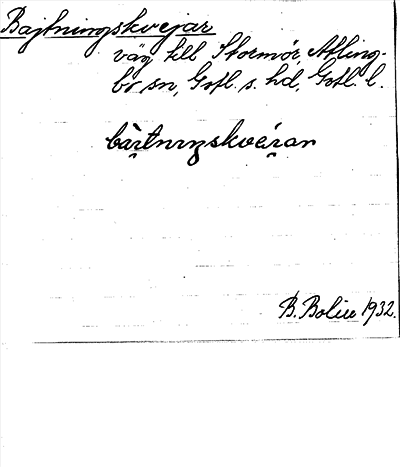 Bajtningskvejar
väg till Stormör, Atling-
bo sn, Gotl. s. hd, Gotl. l.
B. Bolin 1932.